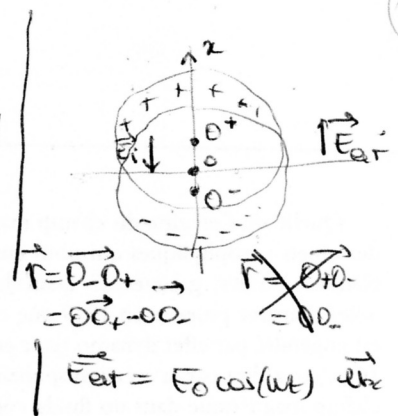 x
+ + + + +
O⁺
E⃗i ↓ O ↑ E⃗ext
O⁻
- - - - -
r⃗ = O₋O₊ r⃗ = O₊O₋
= OO₊ - OO₋ = OO₋
E⃗ext = E₀ cos(ωt) u⃗x